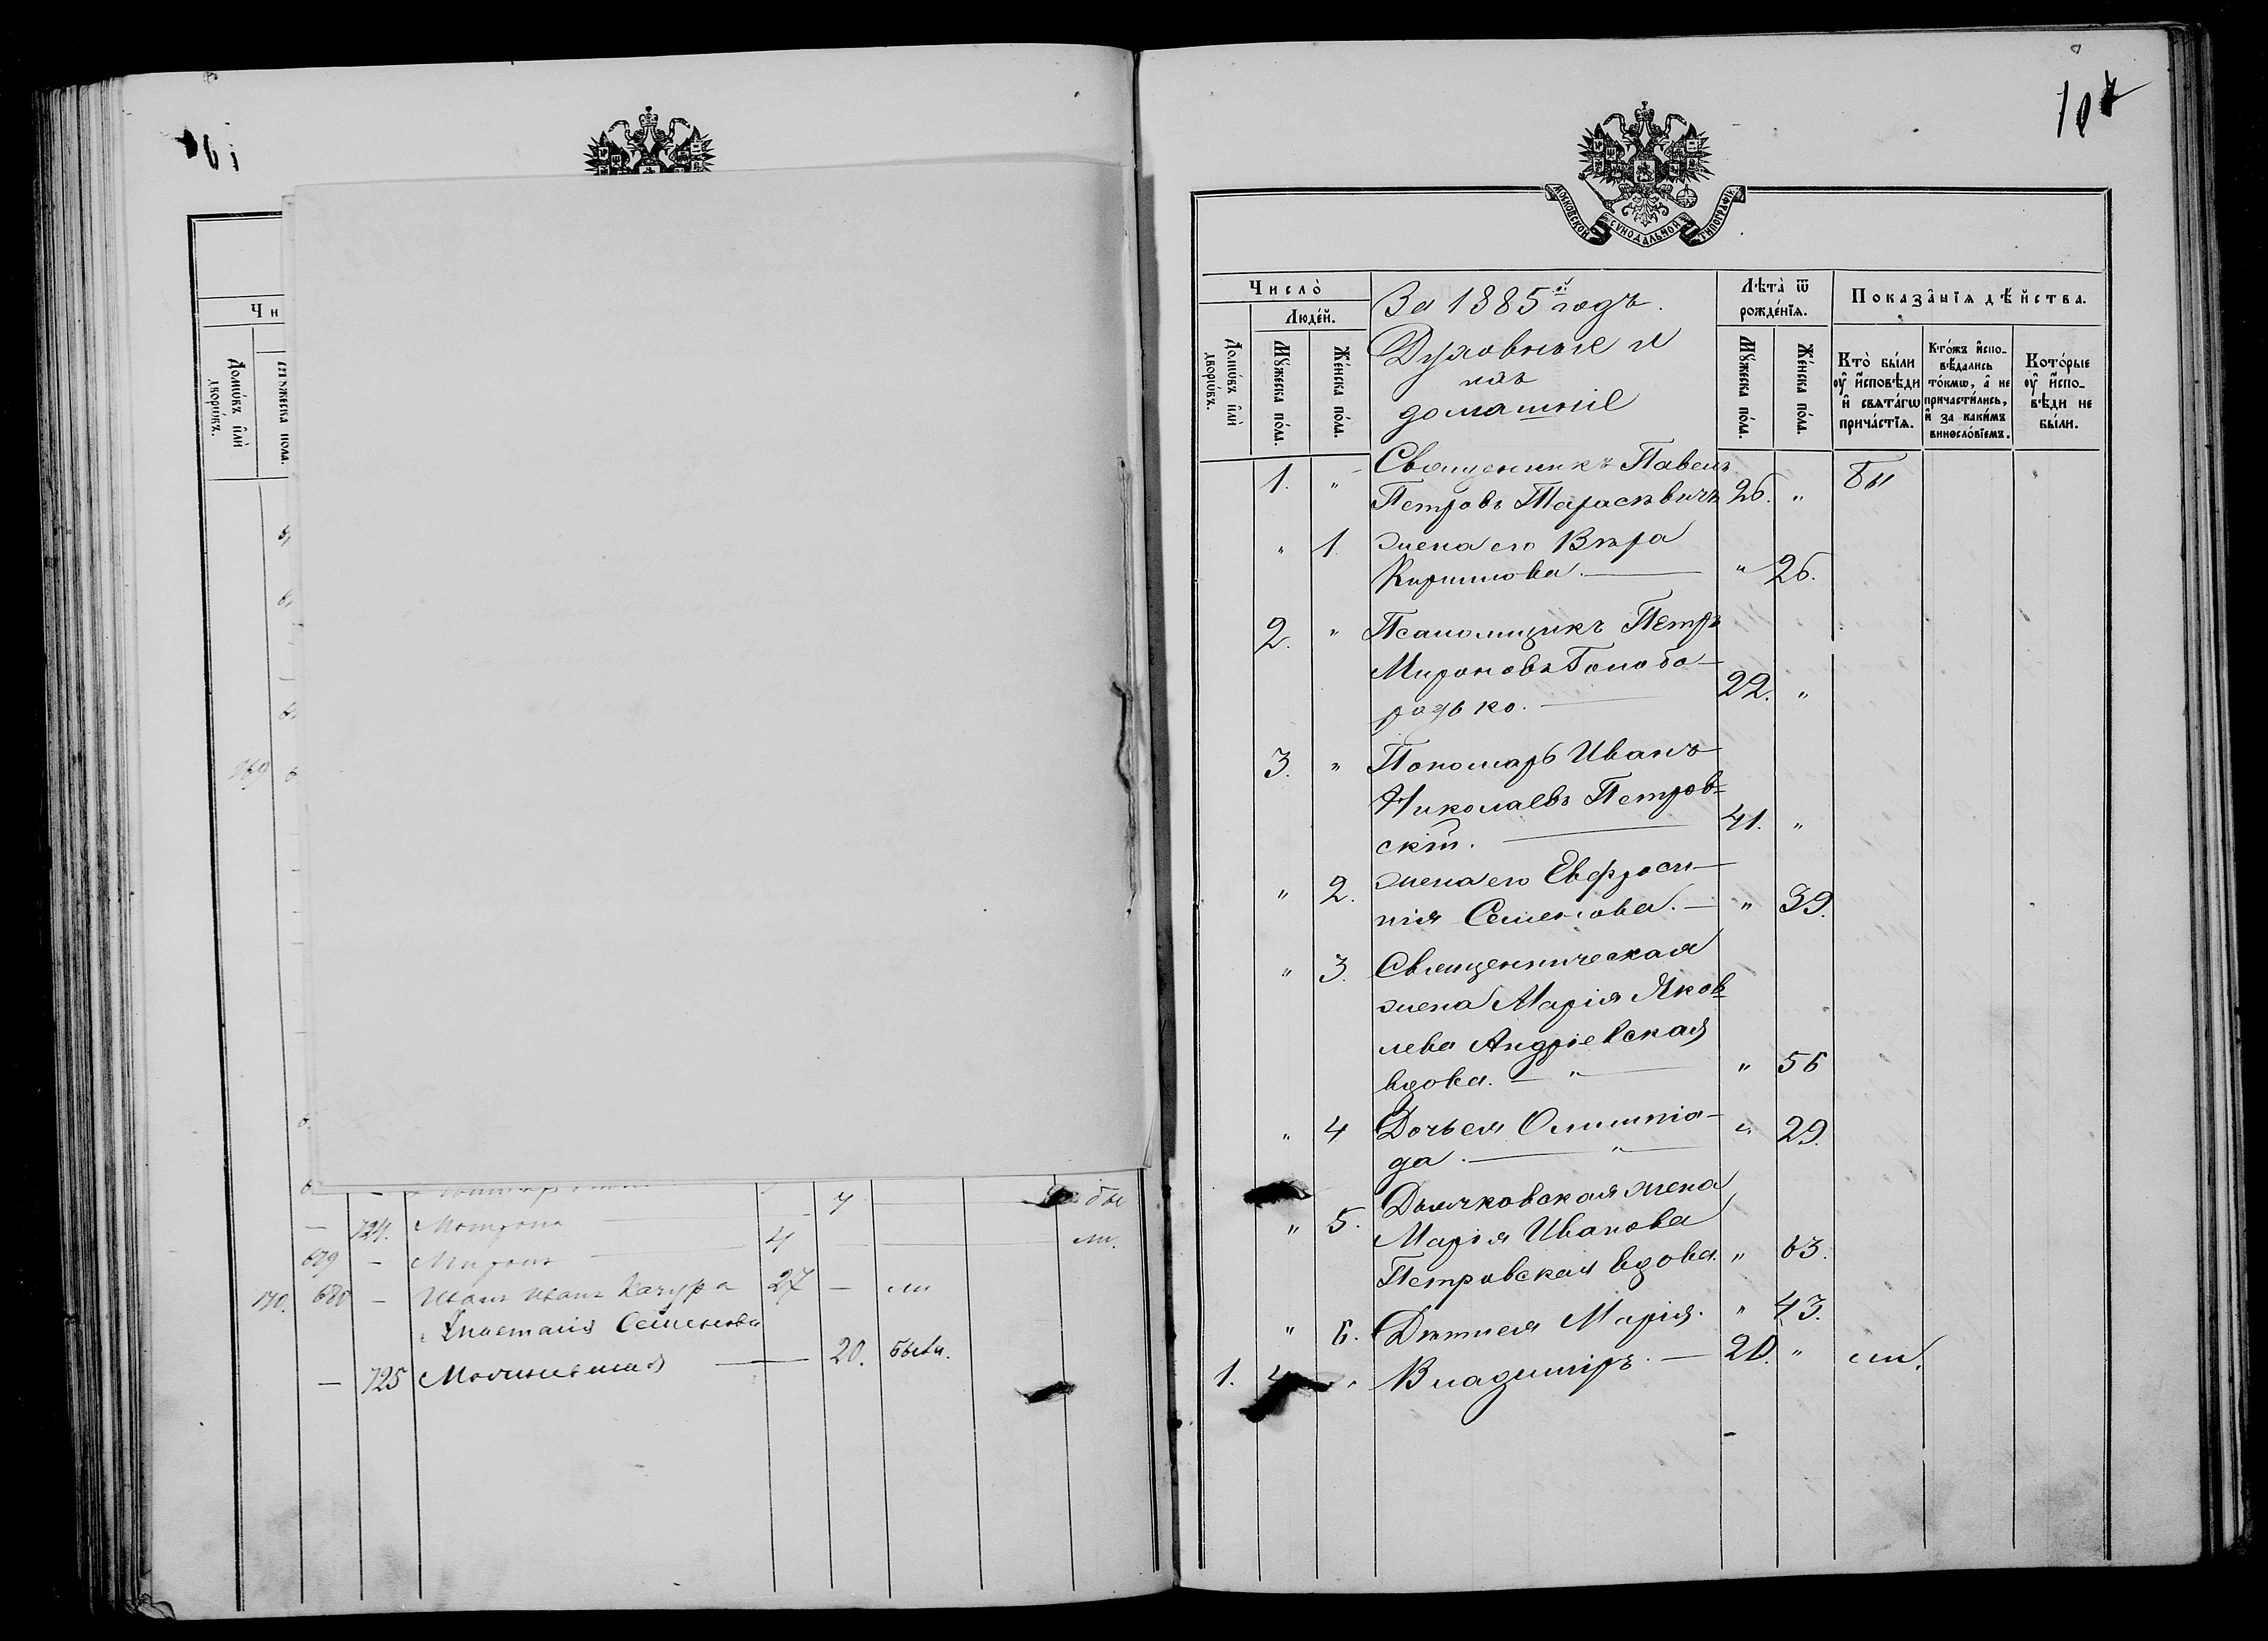 Чи
Домѡ́въ и҆лѝ дворѡ́въ.
Мꙋ́жеска по́ла.
169
7 бы
— 724. Мотрона —
679 — Миронъ 4 ли.
170. 680 — Иванъ Иванъ Качура 27 — ли
Анастасія Семенова
— 725 20. были.
107
МОСКОВСКОЙ СѴНОДАЛЬНОЙ ТИПОГРАФІИ
Число̀
Люде́й.
Домѡ́въ и҆лѝ дворѡ́въ.
Мꙋ́жеска по́ла.
Же́нска по́ла.
За 1885й годъ.
Духовные и
ихъ
домашніе
Лѣта̀ ѿ рожде́нїѧ.
Мꙋ́жеска по́ла.
Же́нска по́ла.
Показа̑нїѧ дѣ́йства.
Кто̀ бы́ли ᲂу҆ и҆сповѣди и҆ свѧта́гѡ прича́стїѧ.
Кто́жъ и҆спо-вѣдались то́кмѡ, а҆ не причасти́лись, и҆ за каки́мъ винословїемъ.
Кото́рые ᲂу҆ и҆спо-вѣди не бы́ли.
1. " Священникъ Павелъ
Петровъ Тарасѣвичъ 26. " бы
" 1 жена его Вѣра
Кирилова. — " 26.
2. " Псаломщикъ Петръ
Мироновъ Голобо-
родько. — 22. "
3. " Пономарь Иванъ
Николаевъ Петров-
скій. — 41. "
" 2. жена его Евфроси-
нія Семенова. — " 39.
" 3. Священническая
жена Марія Яков-
лева Андріевская
вдова. — " — " 56
" 4 Дочь ея Олимпіа-
да. — " — " 29.
" 5. Дьячковская жена
Марія Иванова
Петровская вдова. " 63.
" 6. Дѣти ея Марія. " 43.
1. 4 " Владиміръ. — 20. " ли.